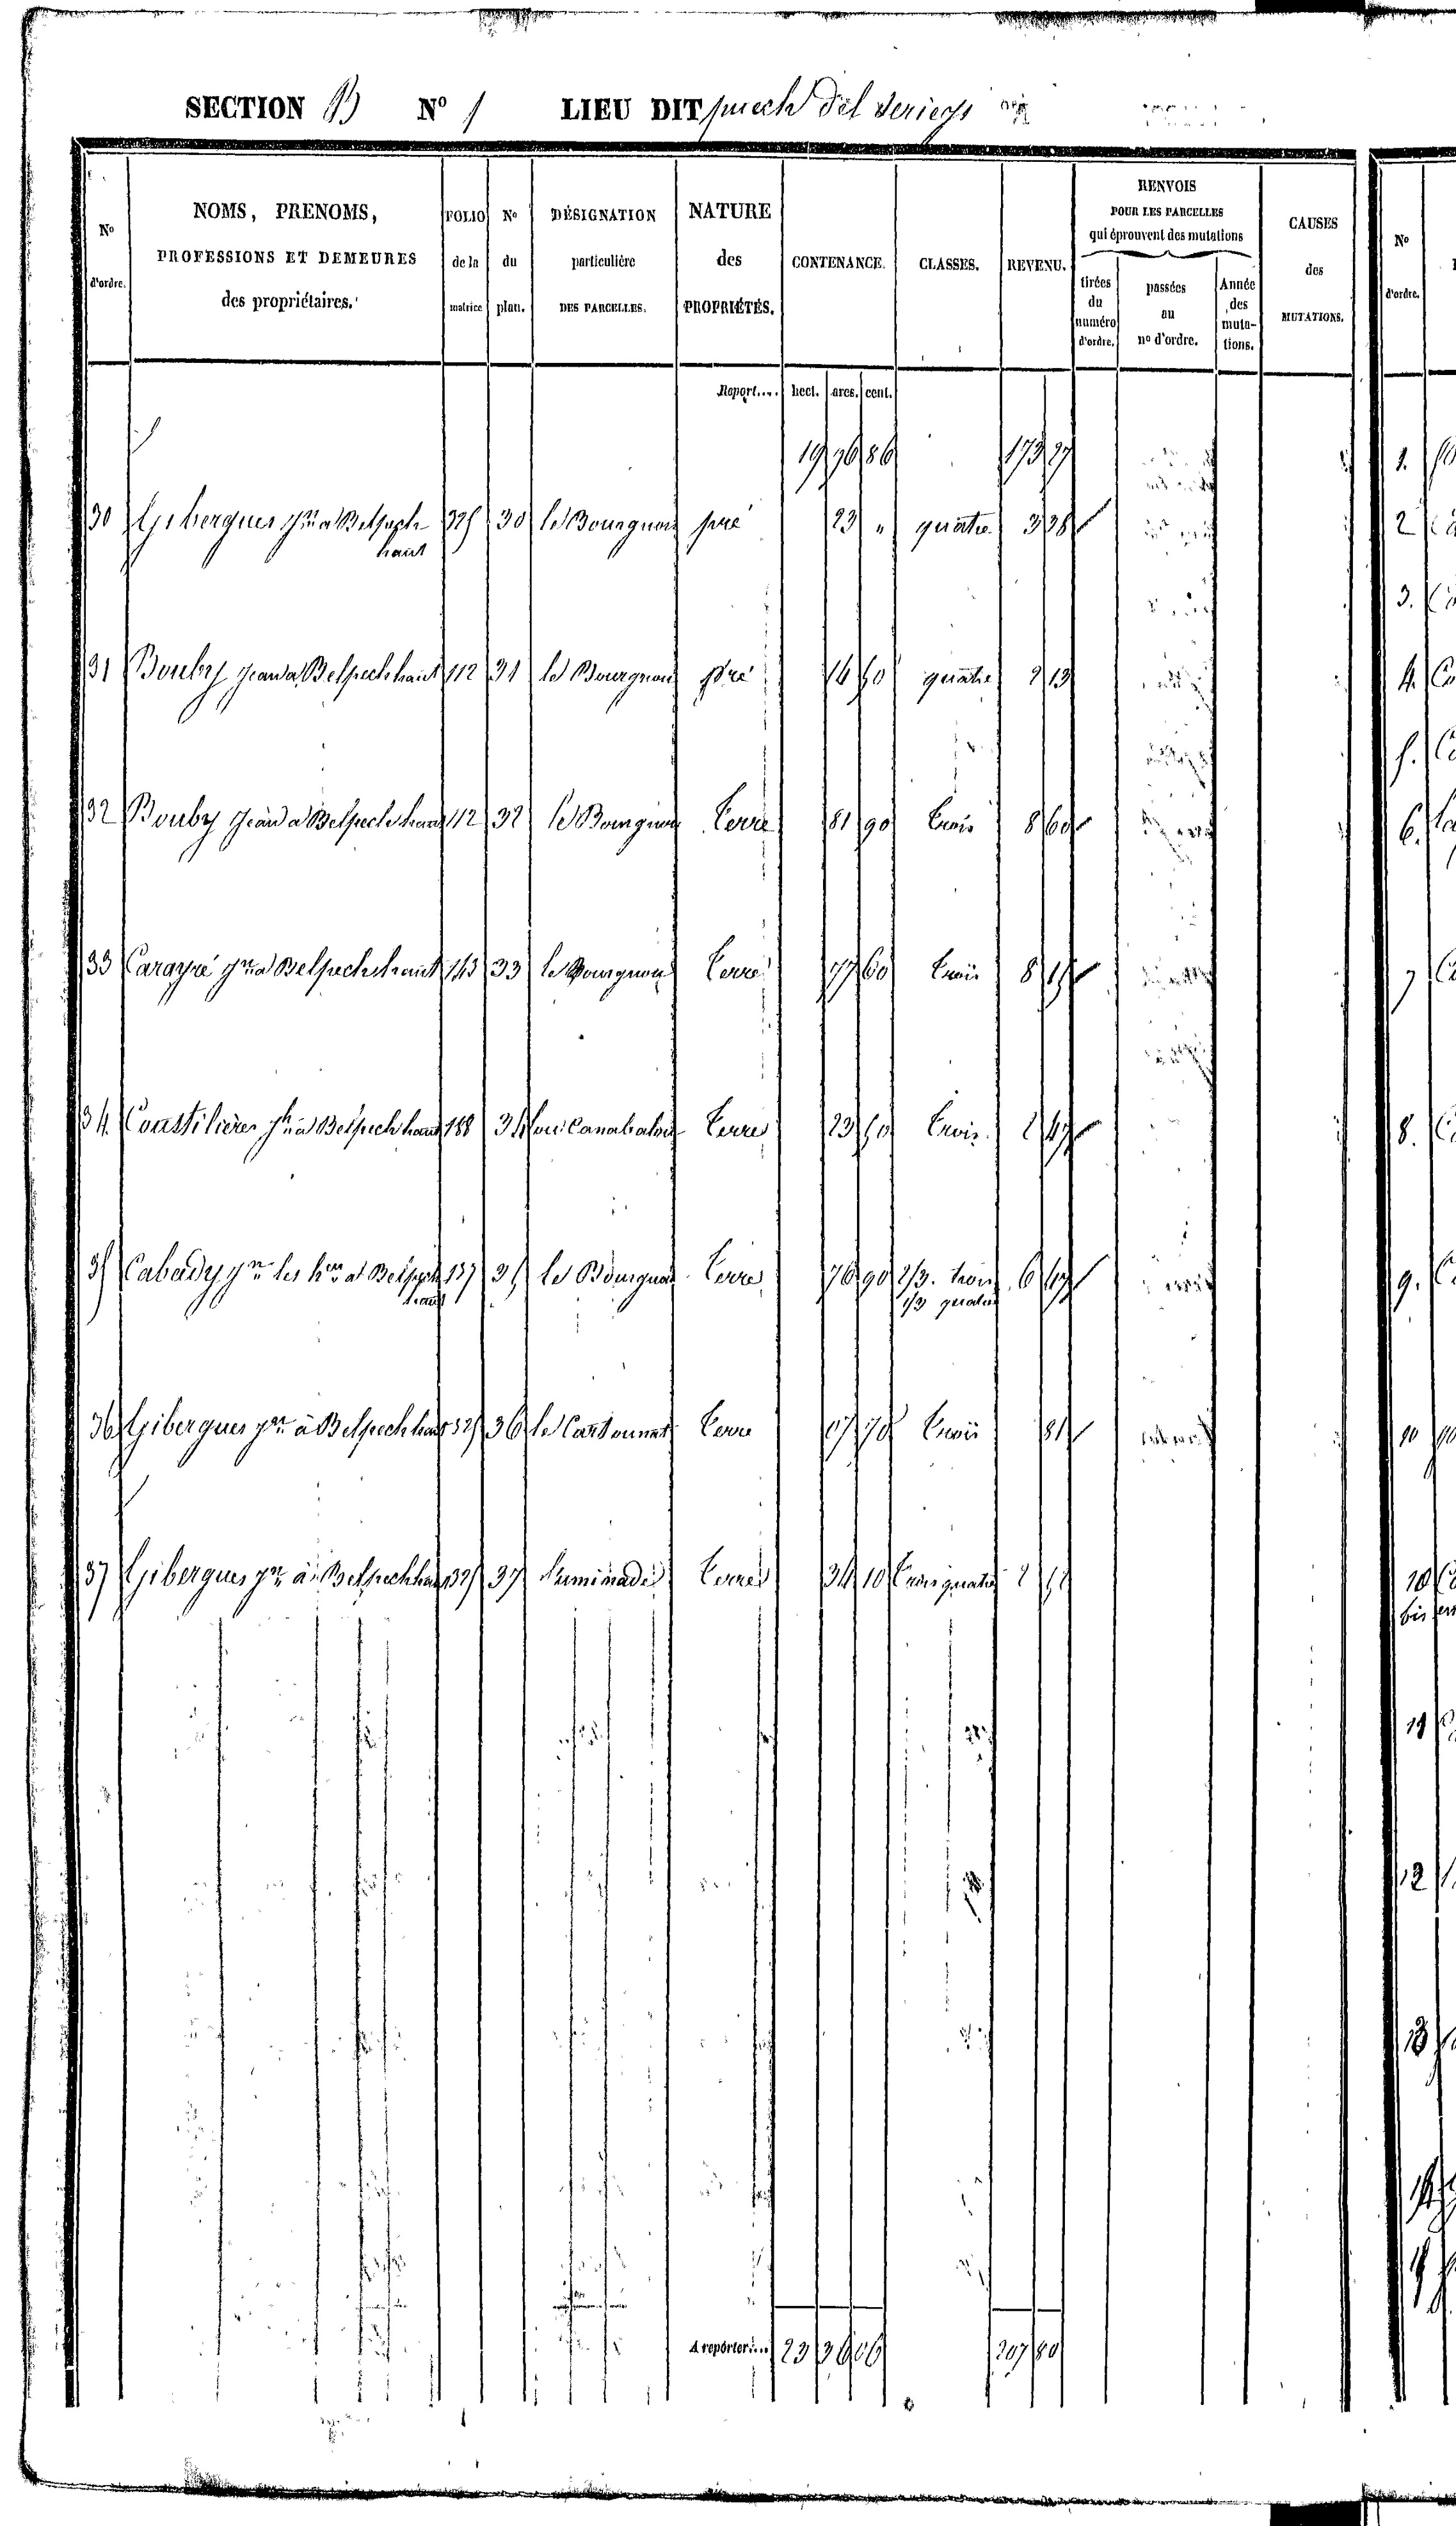 SECTION B N° 1 LIEU DIT puech del
N° d'ordre. NOMS, PRENOMS, PROFESSIONS ET DEMEURES des propriétaires. FOLIO de la matrice N° du plan. DÉSIGNATION particulière DES PARCELLES. NATURE des PROPRIÉTÉS. CONTENANCE. CLASSES. REVENU. RENVOIS POUR LES PARCELLES qui éprouvent des mutations tirées du numéro d'ordre. passées au n° d'ordre. Année des muta-tions. CAUSES des MUTATIONS. N° d'ordre.
Report.... hect. ares. cent.
19 76 86 173 27
30 Gibergues a Belpech haut 325 30 le Bourgnou pré 23 " quatre 3 38
31 Bouby jean a Belpech haut 112 31 le Bourgnou pré 14 50 quatre 2 13
32 Bouby jean a Belpech haut 112 32 le Bourgnou terre 81 90 trois 8 60
33 Carayré a Belpech haut 143 33 le Bourgnou terre 77 60 trois 8 15
34. Coustilières a Belpech haut 188 34 terre 23 50 trois 2 47
35 Cabady les a Belpech haut 137 35 le Bourgnou terre 76 90 2/3. trois 1/3 quatre 6 47
36 Gibergues à Belpech haut 325 36 terre 07 70 trois 81
37 Gibergues à Belpech haut 325 37 terre 34 10 trois quatre 2 52
A reporter.... 23 36 06 207 80
1.
2
3.
4.
5.
6.
7
8.
9.
10
10 bis
11
12
13